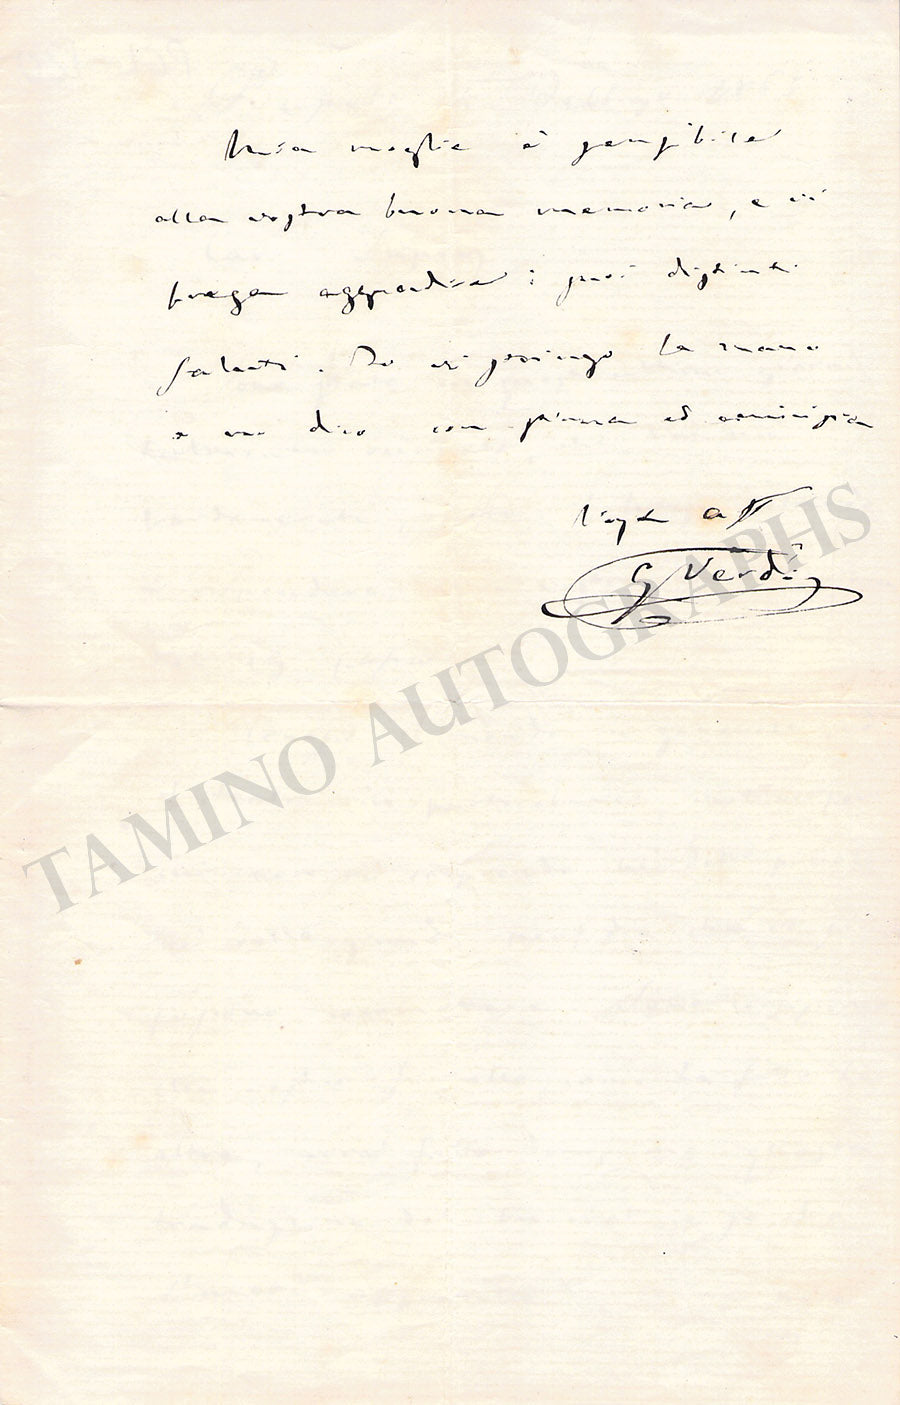 Mia moglie è sensibile
alla vostra buona memoria, e vi
prega aggradire i suoi distinti
saluti. Io vi stringo la mano
e mi dico con stima ed amicizia
Vostro aff
G Verdi
TAMINO AUTOGRAPHS